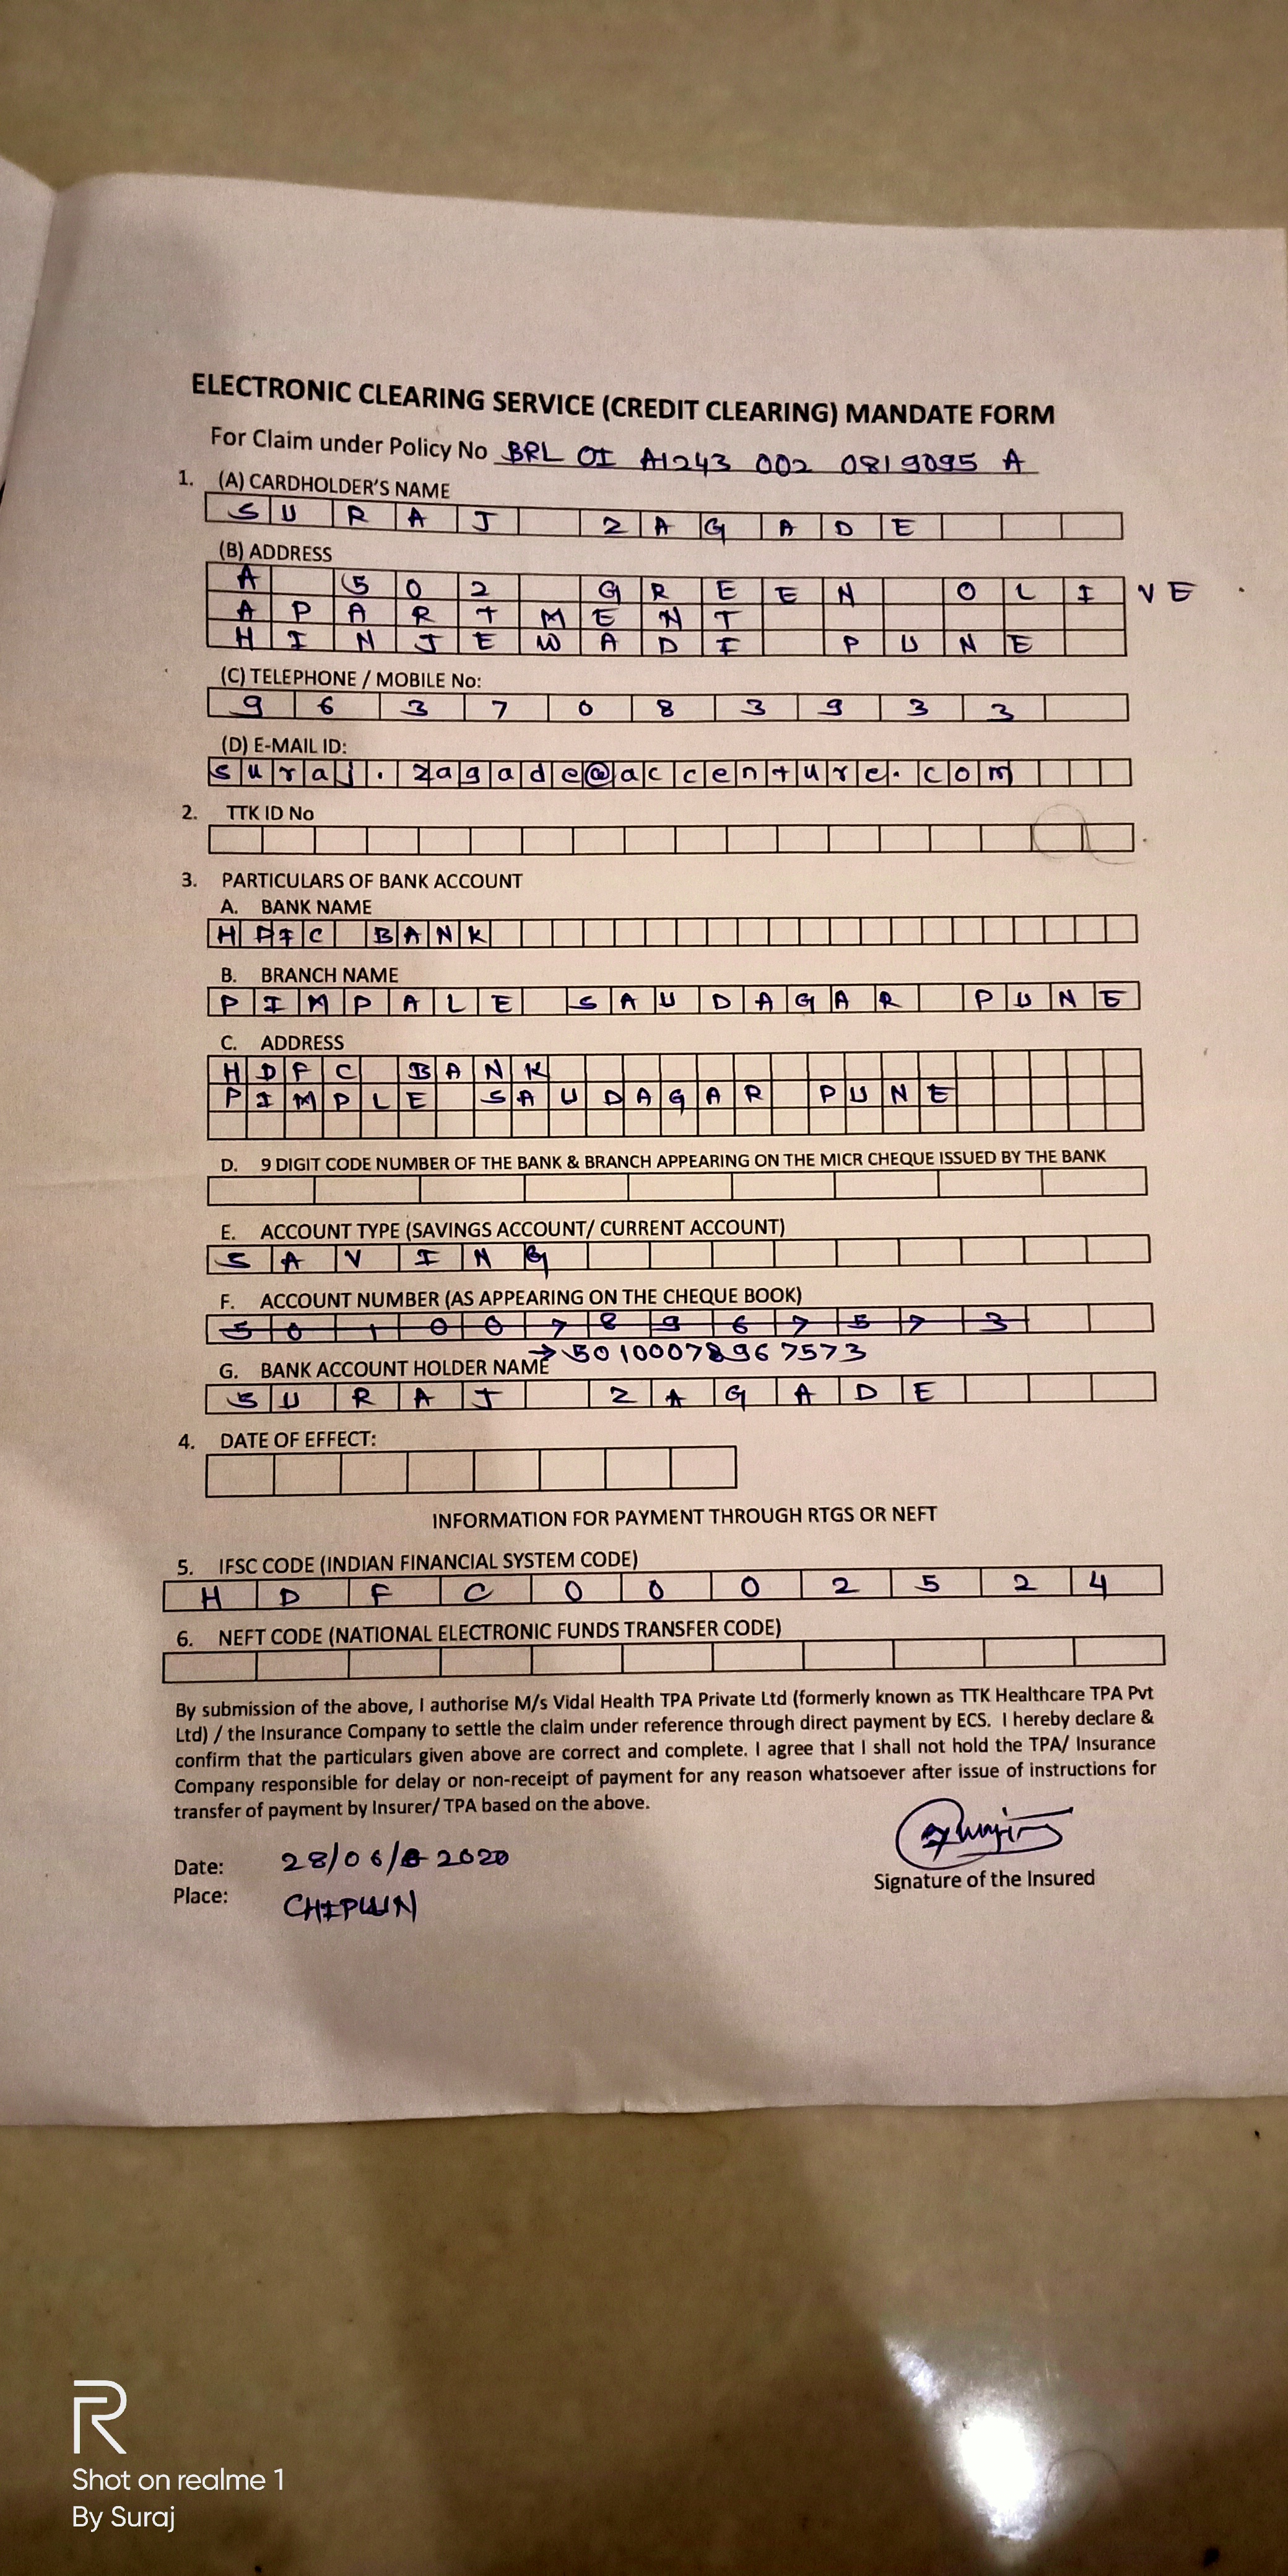 ELECTRONIC CLEARING SERVICE (CREDIT CLEARING) MANDATE FORM
For Claim under Policy No BRL OI A1243 002 0819095 A
1. (A) CARDHOLDER'S NAME
SURAJ ZAGADE
(B) ADDRESS
A 502 GREEN OLIVE
APARTMENT
HINJEWADI PUNE
(C) TELEPHONE / MOBILE No:
9637083933
(D) E-MAIL ID:
suraj.zagade@accenture.com
2. TTK ID No
3. PARTICULARS OF BANK ACCOUNT
A. BANK NAME
HDFC BANK
B. BRANCH NAME
PIMPALE SAUDAGAR PUNE
C. ADDRESS
HDFC BANK
PIMPLE SAUDAGAR PUNE
D. 9 DIGIT CODE NUMBER OF THE BANK & BRANCH APPEARING ON THE MICR CHEQUE ISSUED BY THE BANK
E. ACCOUNT TYPE (SAVINGS ACCOUNT/ CURRENT ACCOUNT)
SAVING
F. ACCOUNT NUMBER (AS APPEARING ON THE CHEQUE BOOK)
5010078967573
→ 50100078967573
G. BANK ACCOUNT HOLDER NAME
SURAJ ZAGADE
4. DATE OF EFFECT:
INFORMATION FOR PAYMENT THROUGH RTGS OR NEFT
5. IFSC CODE (INDIAN FINANCIAL SYSTEM CODE)
HDFC0002524
6. NEFT CODE (NATIONAL ELECTRONIC FUNDS TRANSFER CODE)
By submission of the above, I authorise M/s Vidal Health TPA Private Ltd (formerly known as TTK Healthcare TPA Pvt
Ltd) / the Insurance Company to settle the claim under reference through direct payment by ECS. I hereby declare &
confirm that the particulars given above are correct and complete. I agree that I shall not hold the TPA/ Insurance
Company responsible for delay or non-receipt of payment for any reason whatsoever after issue of instructions for
transfer of payment by Insurer/ TPA based on the above.
Date: 28/06/2020
Place: CHIPLUN
Signature of the Insured
R
Shot on realme 1
By Suraj